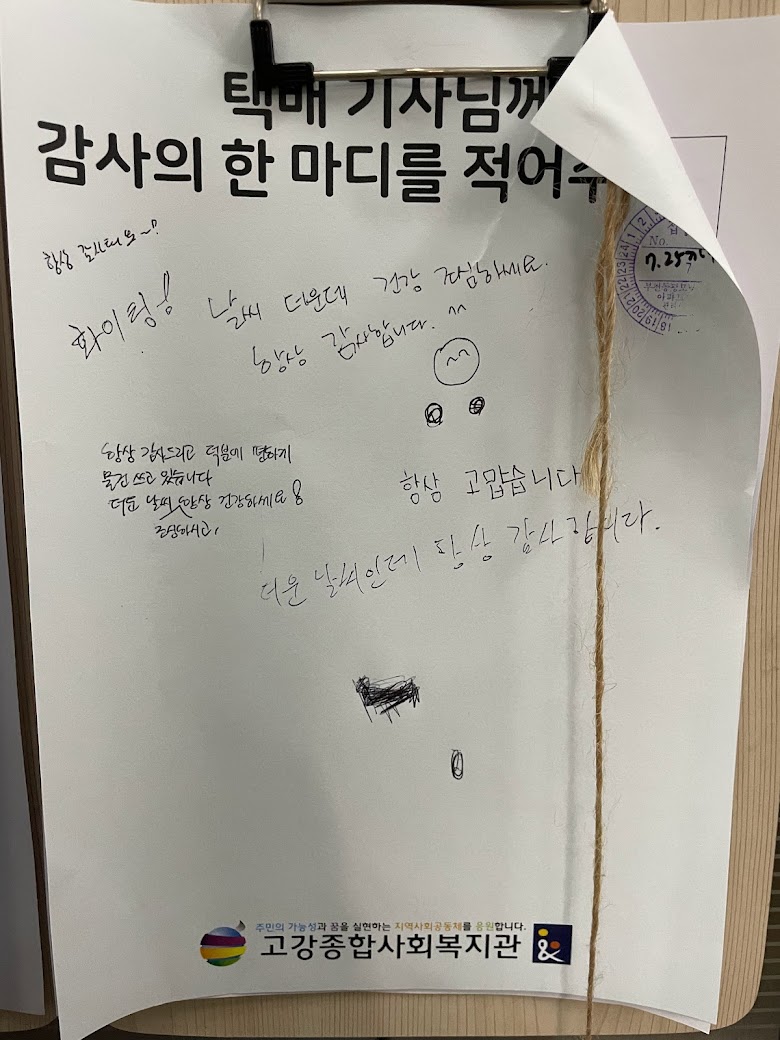 택배 기사님께
감사의 한 마디를 적어주
항상 감사해요~!!
화이팅! 날씨 더운데 건강 조심하세요.
항상 감사합니다. ^^
항상 감사드리고 덕분에 편하게
물건 쓰고 있습니다
더운 날씨 항상 건강하세요!
조심하시고,
항상 고맙습니다
더운 날씨인데 항상 감사합니다.
No.
7.25까지
주민의 가능성과 꿈을 실현하는 지역사회공동체를 응원합니다.
고강종합사회복지관